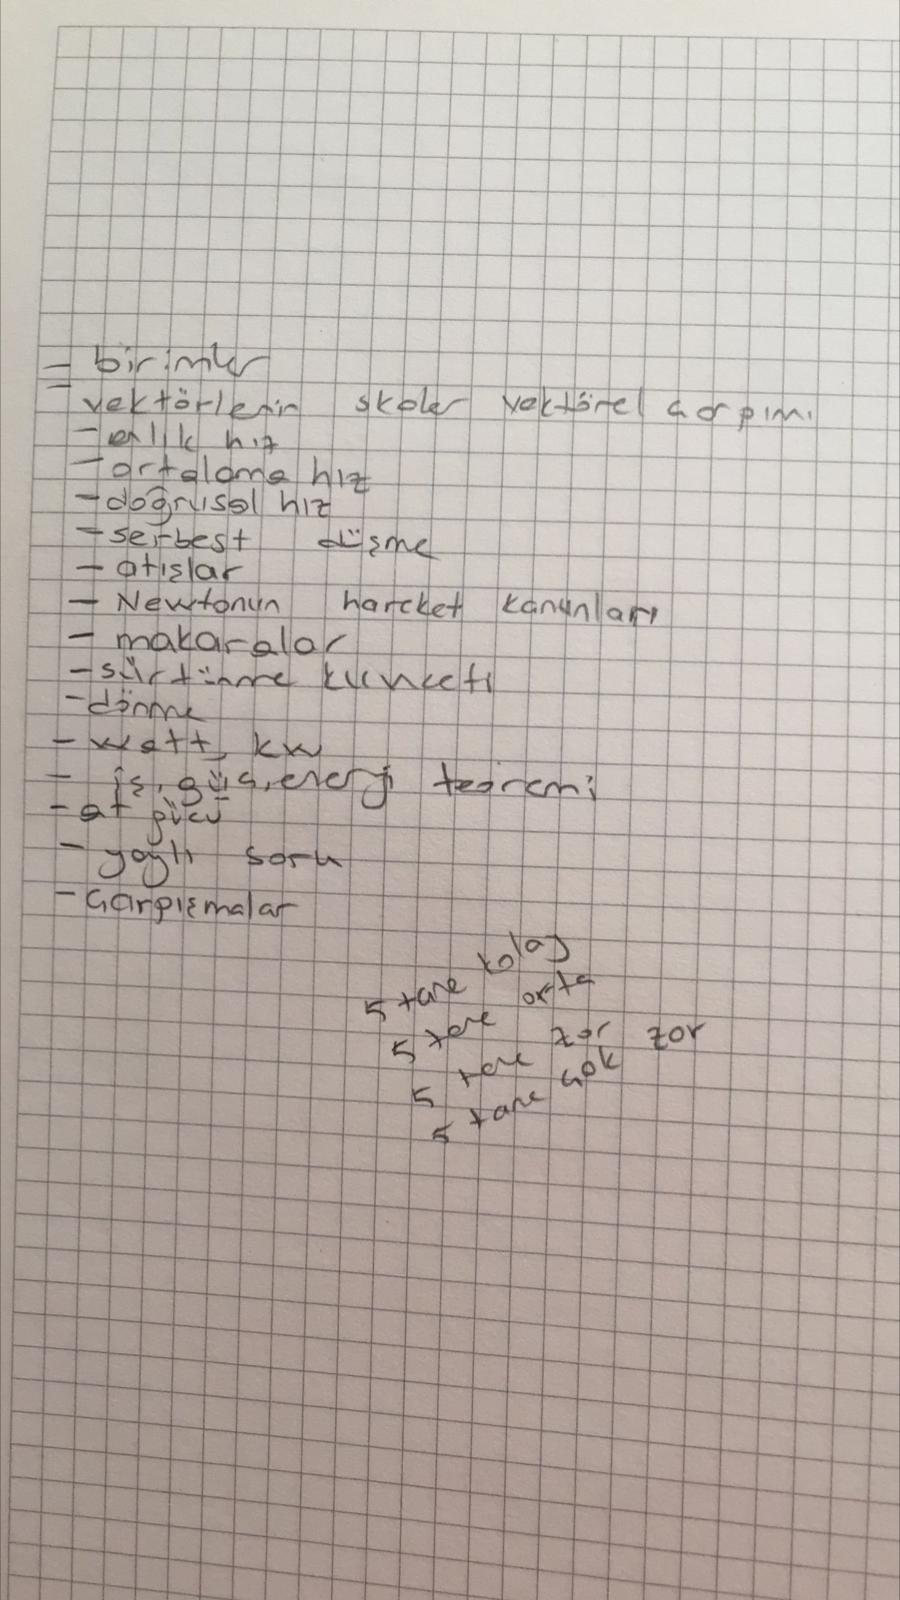 - birimler
- vektörlerin skaler vektörel çarpımı
- anlık hız
- ortalama hız
- doğrusal hız
- serbest düşme
- atışlar
- Newtonun hareket kanunları
- makaralar
- sürtünme kuvveti
- dönme
- watt, kw
- iş, güç, enerji teoremi
- at gücü
- yaylı soru
- çarpışmalar
5 tane kolay
5 tane orta
5 tane zor
5 tane çok zor